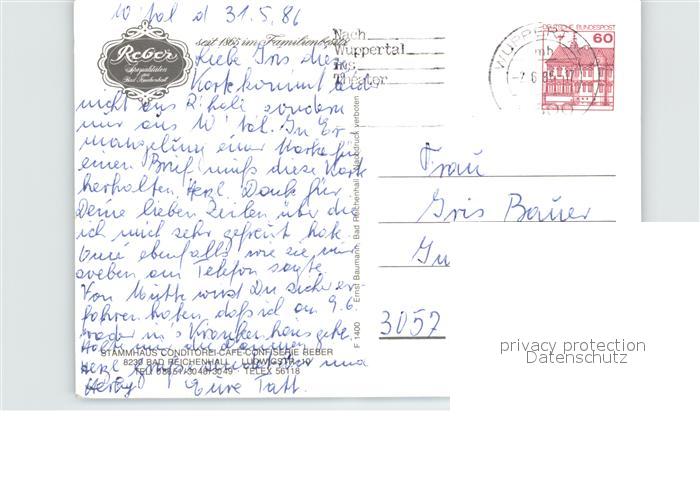 W'tal d 31.5.86
Reber
Spezialitäten
aus
Bad Reichenhall
seit 1865 im Familienbesitz
Liebe Iris diese
Karte kommt leider
nicht aus R'hall sondern
nur aus W'tal. In Er
mangelung einer Karte für
einen Brief muß diese Karte
herhalten. Herzl. Dank für
Deine lieben Zeilen über die
ich mich sehr gefreut habe.
ebenfalls wie sie mir
soeben am Telefon sagte.
Von Mutti wirst Du sicher er
fahren haben, daß ich am 9.6.
wieder in's Krankenhaus gehe.
Halte mir die Daumen
Herzl. Grüße und
Eure Tatt
STAMMHAUS CONDITOREI-CAFE-CONFISERIE REBER
8230 BAD REICHENHALL LUDWIGSTR.
TEL. 08651/3048/3049 · TELEX 56118
F 1400 Ernst Baumann, Bad Reichenhall Nachdruck verboten
Nach
Wuppertal
ins
Theater
WUPPERTAL
mb
DEUTSCHE BUNDESPOST
60
Frau
Iris Bauer
3057
privacy protection
Datenschutz